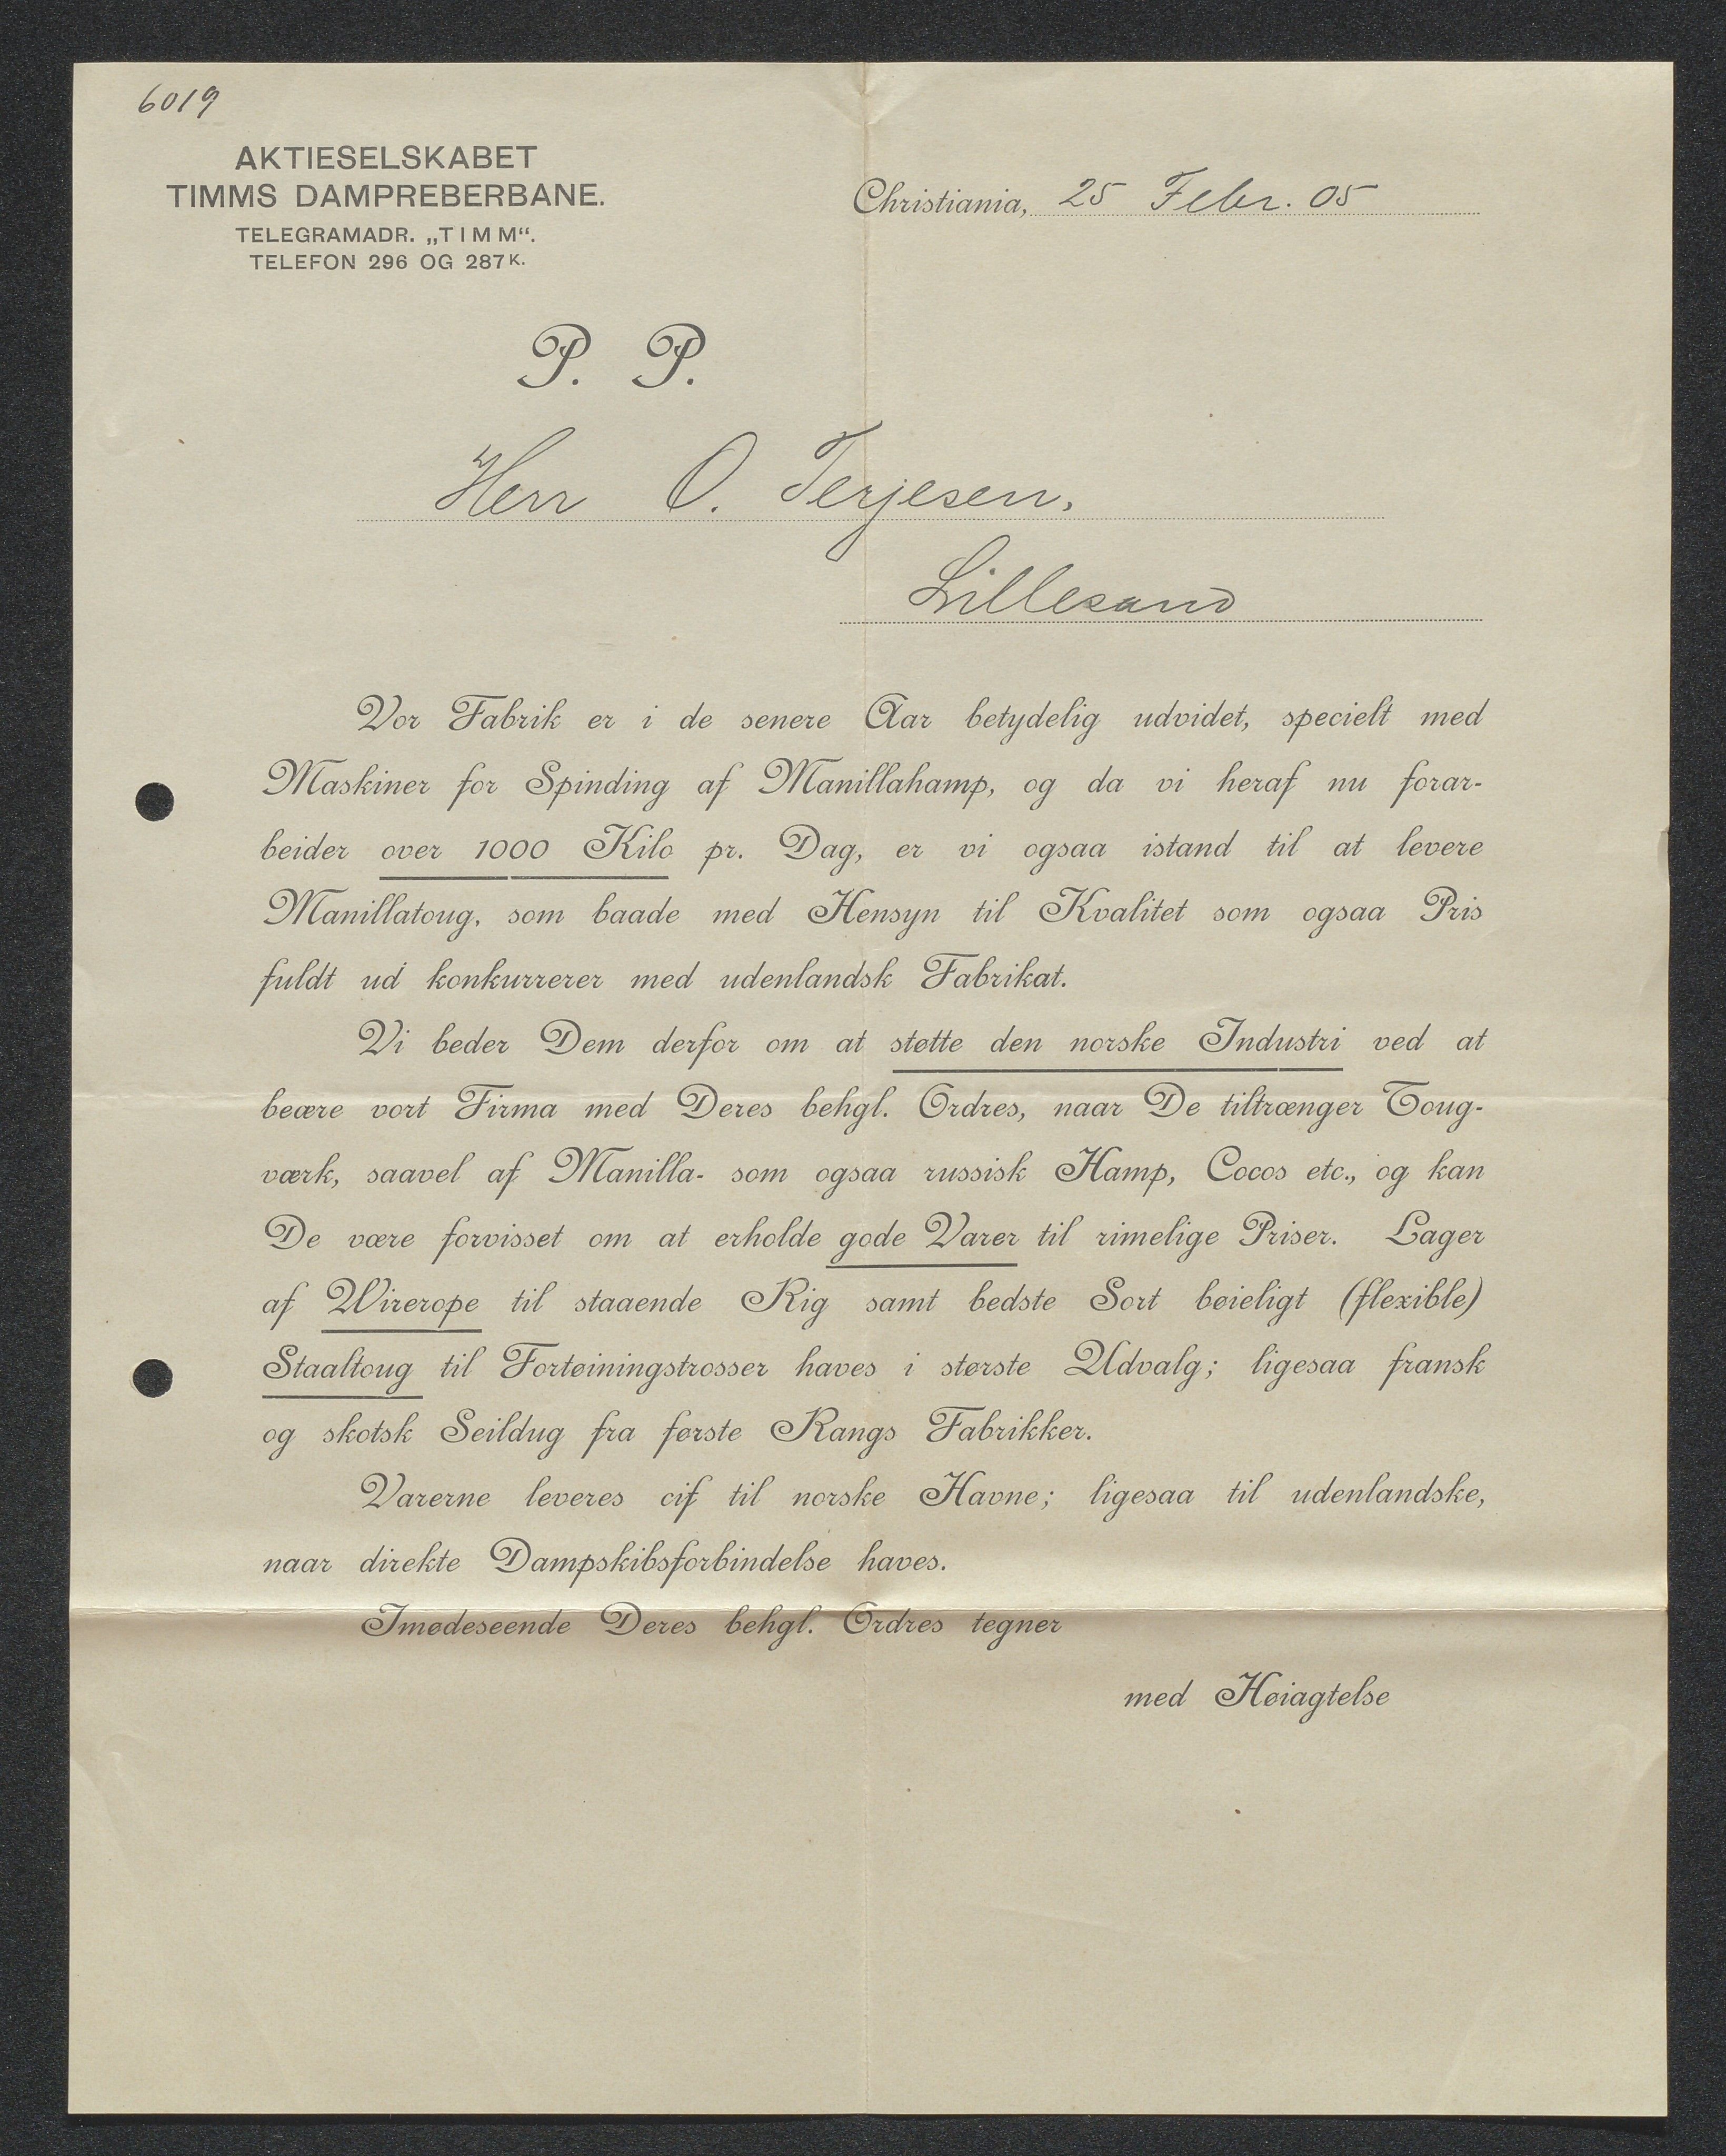 6019
AKTIESELSKABET
TIMMS DAMPREBERBANE.
TELEGRAMADR. „TIMM“.
TELEFON 296 OG 287 K.
Christiania, 25 Febr. 05
P. P.
Herr O. Terjesen,
Lillesand
Vor Fabrik er i de senere Aar betydelig udvidet, specielt med
Maskiner for Spinding af Manillahamp, og da vi heraf nu forar-
beider over 1000 Kilo pr. Dag, er vi ogsaa istand til at levere
Manillatoug, som baade med Hensyn til Kvalitet som ogsaa Pris
fuldt ud konkurrerer med udenlandsk Fabrikat.
Vi beder Dem derfor om at støtte den norske Industri ved at
beære vort Firma med Deres behgl. Ordres, naar De tiltrænger Toug-
værk, saavel af Manilla- som ogsaa russisk Hamp, Cocos etc., og kan
De være forvisset om at erholde gode Varer til rimelige Priser. Lager
af Wirerope til staaende Rig samt bedste Sort bøieligt (flexible)
Staaltoug til Fortøiningstrosser haves i største Udvalg; ligesaa fransk
og skotsk Seildug fra første Rangs Fabrikker.
Varerne leveres cif til norske Havne; ligesaa til udenlandske,
naar direkte Dampskibsforbindelse haves.
Imødeseende Deres behgl. Ordres tegner
med Høiagtelse